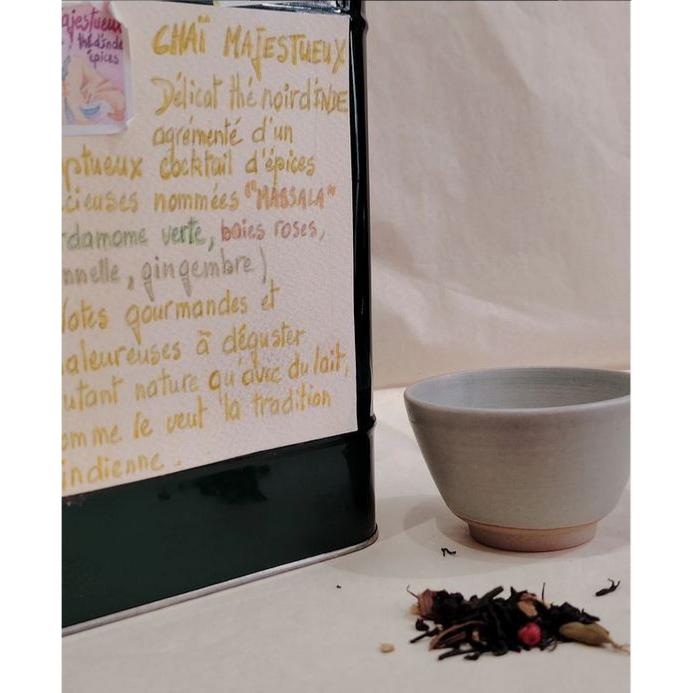 ajestueux
thé d'inde
épices
CHAÏ MAJESTUEUX
Délicat thé noir d'INDE
agrémenté d'un
ptueux cocktail d'épices
cieuses nommées "MASSALA"
rdamome verte, baies roses,
nnelle, gingembre)
otes gourmandes et
aleureuses à déguster
utant nature qu'avec du lait,
omme le veut la tradition
indienne.